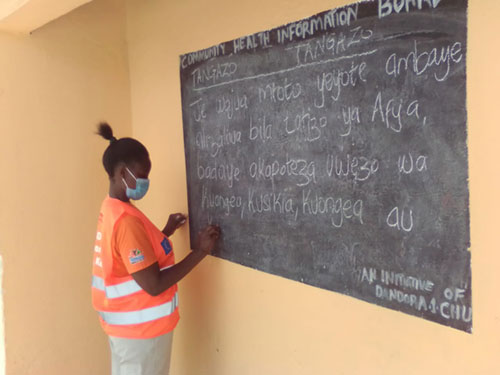 COMMUNITY HEALTH INFORMATION BOARD
TANGAZO TANGAZO
Je wajua mtoto yeyote ambaye
alizaliwa bila tatizo ya Afya,
badaaye akapoteza uwezo wa
Kuongea, Kusikia, Kuongea au
AN INITIATIVE OF
DANDORA 1 CHU